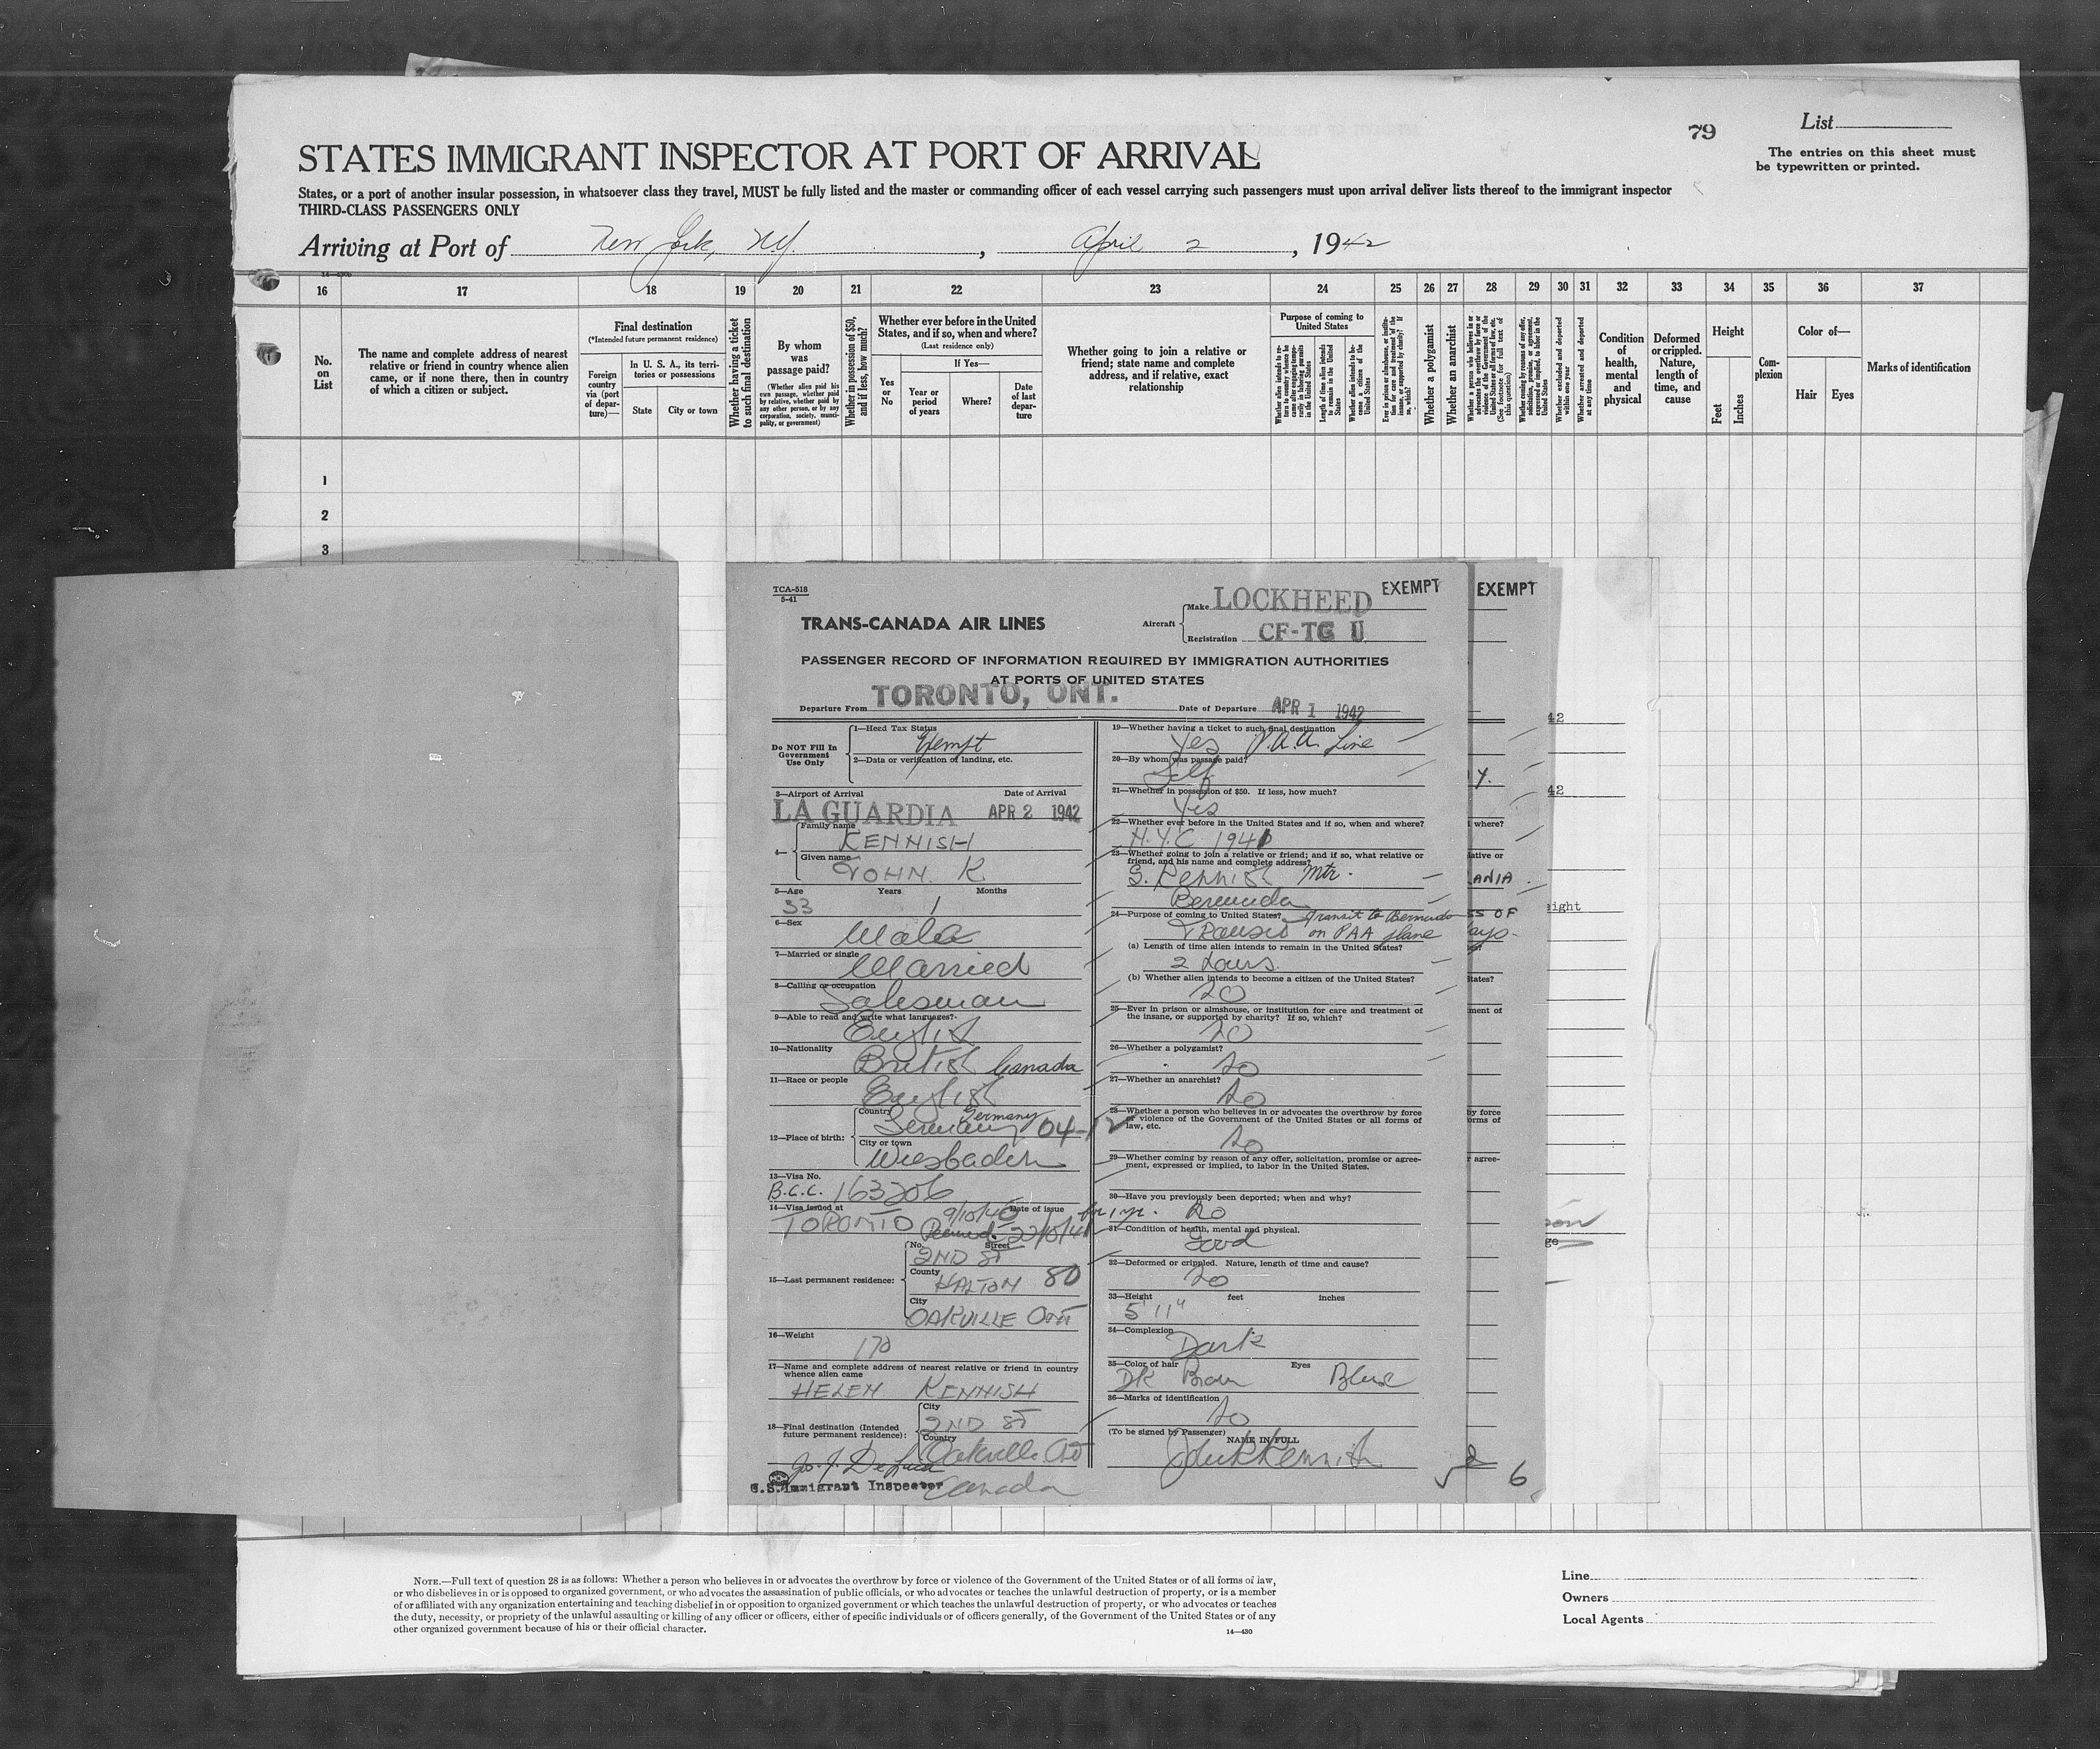 79
List
The entries on this sheet must
be typewritten or printed.
STATES IMMIGRANT INSPECTOR AT PORT OF ARRIVAL
States, or a port of another insular possession, in whatsoever class they travel, MUST be fully listed and the master or commanding officer of each vessel carrying such passengers must upon arrival deliver lists thereof to the immigrant inspector
THIRD-CLASS PASSENGERS ONLY
Arriving at Port of New York, N.Y. , April 2 , 1942
16 17 18 19 20 21 22 23 24 25 26 27 28 29 30 31 32 33 34 35 36 37
No. on List
The name and complete address of nearest
relative or friend in country whence alien
came, or if none there, then in country
of which a citizen or subject.
Final destination
(*Intended future permanent residence)
Foreign country via (port of departure)—
In U. S. A., its territories or possessions
State
City or town
Whether having a ticket to such final destination
By whom was passage paid?
(Whether alien paid his own passage, whether paid by relative, whether paid by any other person, or by any corporation, society, municipality, or government)
Whether in possession of $50, and if less, how much?
Whether ever before in the United States, and if so, when and where?
(Last residence only)
Yes or No
If Yes—
Year or period of years
Where?
Date of last departure
Whether going to join a relative or
friend; state name and complete
address, and if relative, exact
relationship
Purpose of coming to United States
Length of time alien intends to remain in the United States
Whether alien intends to become a citizen of the United States
Whether a polygamist
Whether an anarchist
Whether arrested and deported at any time
Condition of health, mental and physical
Deformed or crippled. Nature, length of time, and cause
Height
Feet
Inches
Complexion
Color of—
Hair
Eyes
Marks of identification
1
2
3
TCA-518
5-41
TRANS-CANADA AIR LINES
Aircraft
Make LOCKHEED
Registration CF-TG U
EXEMPT
EXEMPT
PASSENGER RECORD OF INFORMATION REQUIRED BY IMMIGRATION AUTHORITIES
AT PORTS OF UNITED STATES
Departure From TORONTO, ONT. Date of Departure APR 1 1942
Do NOT Fill In Government Use Only
1—Head Tax Status
Exempt
2—Data or verification of landing, etc.
3—Airport of Arrival Date of Arrival
LA GUARDIA APR 2 1942
4— Family name
KENNISH
Given name
JOHN. K.
5—Age Years Months
33 1
6—Sex
Male
7—Married or single
Married
8—Calling or occupation
Salesman
9—Able to read and write what languages?
English
10—Nationality
British Canada
11—Race or people
English
12—Place of birth: Country
Germany Germany 04-12
City or town
Wiesbaden
13—Visa No.
B.C.C. 163206
14—Visa issued at Date of issue
TORONTO 9/10/40
15—Last permanent residence:
No. Street
2ND ST
County
HALTON 80
City
OAKVILLE Ont
16—Weight
170
17—Name and complete address of nearest relative or friend in country
whence alien came
HELEN KENNISH
18—Final destination (Intended
future permanent residence):
City
2ND ST
Country
Oakville Ont
Canada
U.S. Immigrant Inspector
19—Whether having a ticket to such final destination
Yes P.A.A. Line
20—By whom was passage paid?
Self
21—Whether in possession of $50. If less, how much?
Yes
22—Whether ever before in the United States and if so, when and where?
N.Y.C 1941
23—Whether going to join a relative or friend; and if so, what relative or
friend, and his name and complete address?
S. Kennish Mtr.
Bermuda
24—Purpose of coming to United States? Transit to Bermuda
Transit on PAA plane
(a) Length of time alien intends to remain in the United States?
2 days.
(b) Whether alien intends to become a citizen of the United States?
No
25—Ever in prison or almshouse, or institution for care and treatment of
the insane, or supported by charity? If so, which?
No
26—Whether a polygamist?
No
27—Whether an anarchist?
No
28—Whether a person who believes in or advocates the overthrow by force
or violence of the Government of the United States or all forms of
law, etc.
No
29—Whether coming by reason of any offer, solicitation, promise or agree-
ment, expressed or implied, to labor in the United States.
30—Have you previously been deported; when and why?
No
31—Condition of health, mental and physical.
Good
32—Deformed or crippled. Nature, length of time and cause?
No
33—Height feet inches
5' 11"
34—Complexion
Dark
35—Color of hair Eyes
DK Brown Blue
36—Marks of identification
No
(To be signed by Passenger) NAME IN FULL
John K Kennish
6
NOTE.—Full text of question 28 is as follows: Whether a person who believes in or advocates the overthrow by force or violence of the Government of the United States or of all forms of law,
or who disbelieves in or is opposed to organized government, or who advocates the assassination of public officials, or who advocates or teaches the unlawful destruction of property, or is a member
of or affiliated with any organization entertaining and teaching disbelief in or opposition to organized government or which teaches the unlawful destruction of property, or who advocates or teaches
the duty, necessity, or propriety of the unlawful assaulting or killing of any officer or officers, either of specific individuals or of officers generally, of the Government of the United States or of any
other organized government because of his or their official character.
14—430
Line
Owners
Local Agents